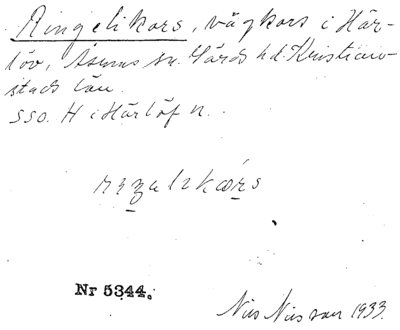 Ringelikors, vägkors i Här-
löv, Äsums sn. Gärds hd. Kristian-
stads län.
SSO. H i Härlöf n.
Nr 5344.
Nils Nilsson 1933.